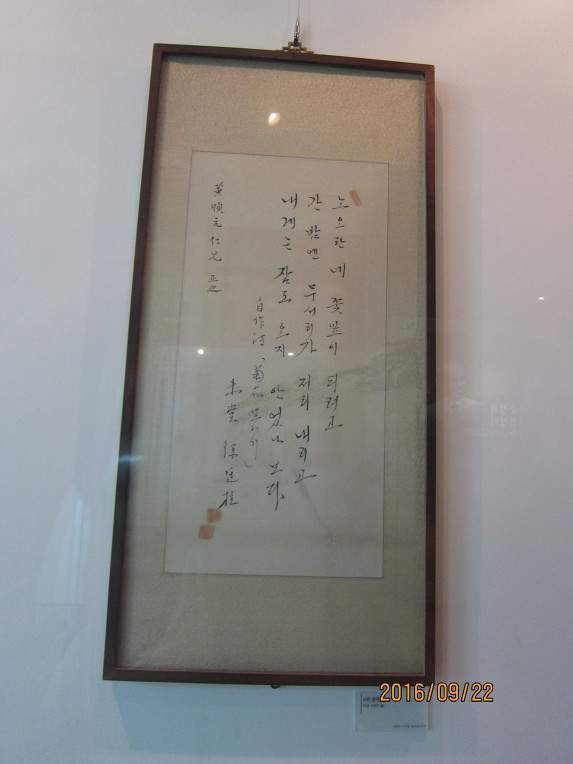 노오란 네 꽃잎이 피려고
간 밤엔 무서리가 저리 내리고
내게는 잠도 오지 안었나 보다.
自作詩「菊花옆에서」
未堂 徐廷柱
黃順元仁兄 正之
2016/09/22